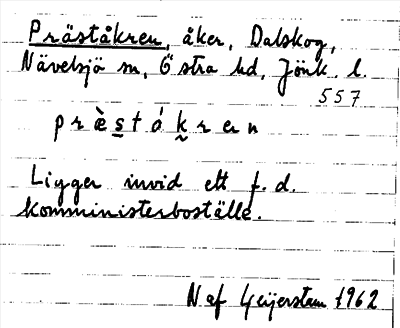 Präståkren, åker, Dalskog,
Nävelsjö sn, Östra hd, Jönk. l.
557
præ̀stákren
Ligger invid ett f.d.
komministerboställe.
N af Geijerstam 1962